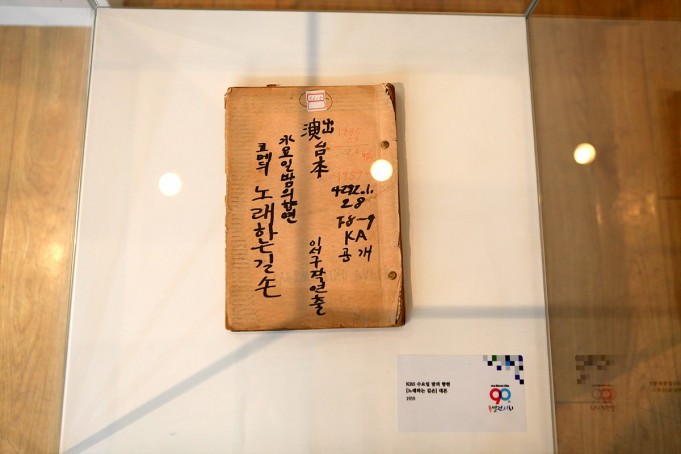 演出
台本
4292.1.
28
78-9
KA
공개
이서구작연출
水요일밤의향연
코메디 노래하는길손
KBS 수요일 밤의 향연
[노래하는 길손] 대본
1959
90